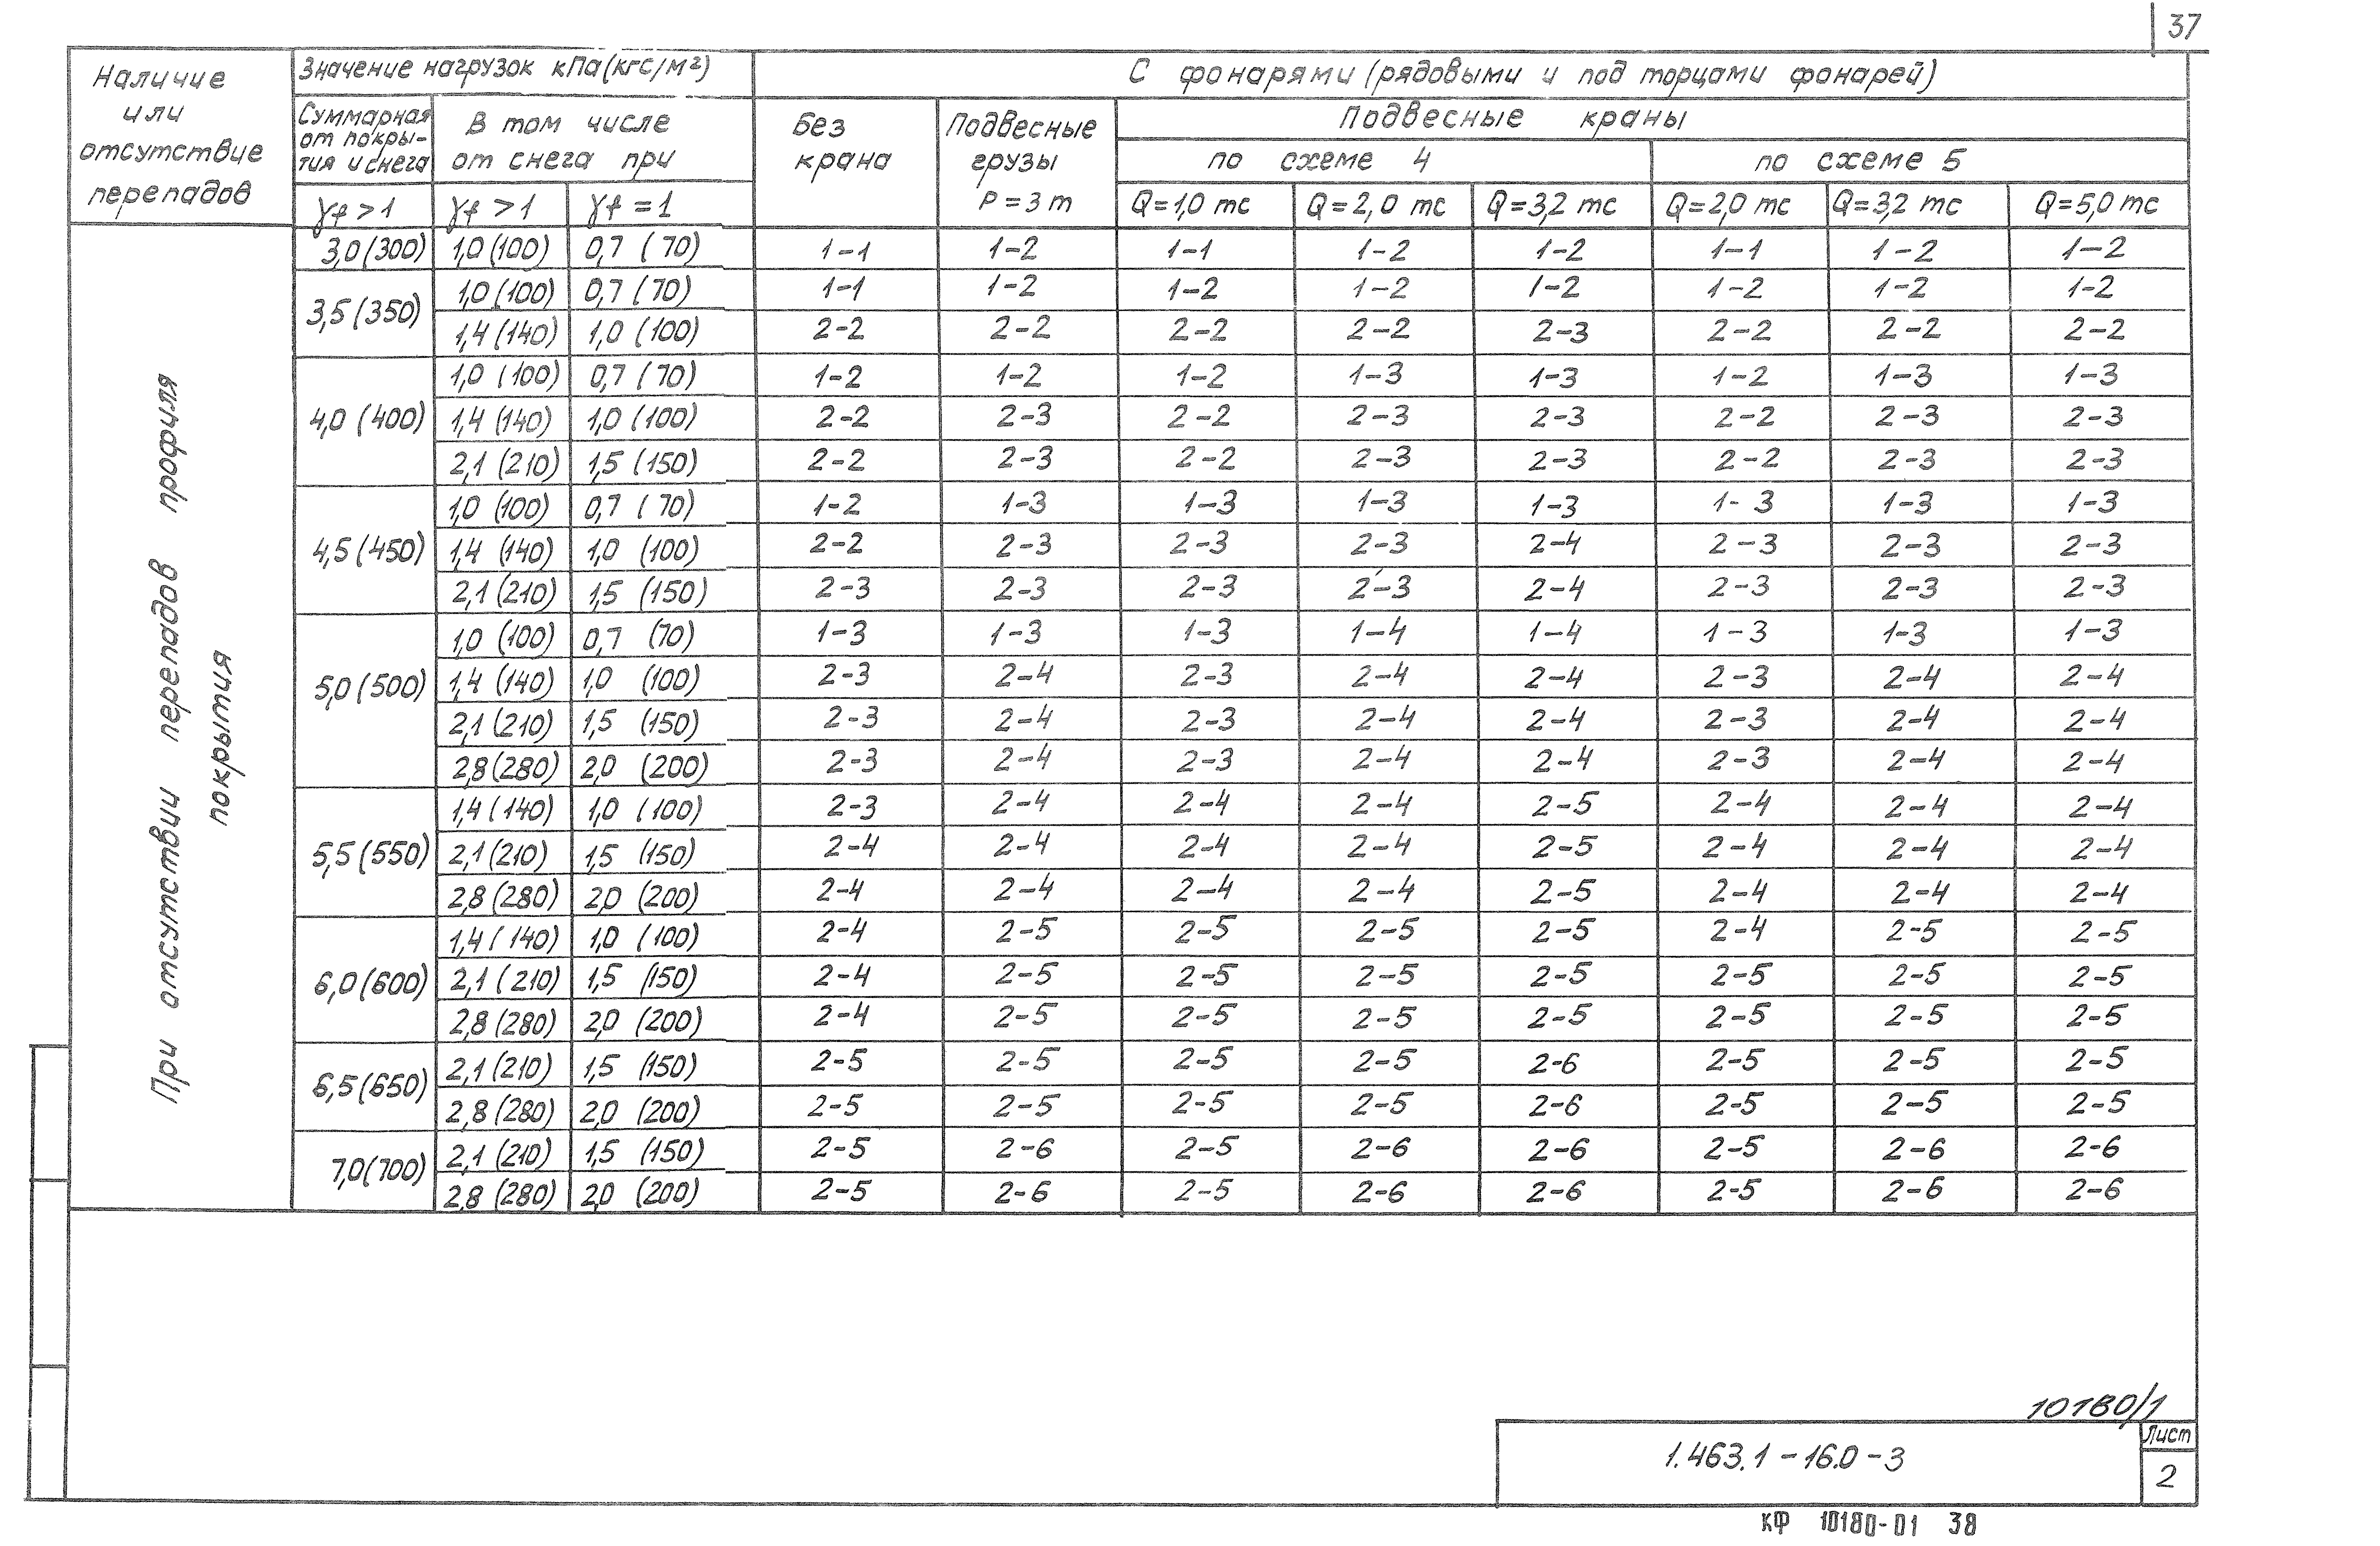 37
Наличие
или
отсутствие
перепадов
Значение нагрузок кПа(кгс/м²)
С фонарями (рядовыми и под торцами фонарей)
Суммарная
от покры-
тия и снега
В том числе
от снега при
Без
крана
Подвесные
грузы
Р = 3 т
Подвесные краны
по схеме 4
по схеме 5
γf > 1 γf > 1 γf = 1
Q=1,0 тс Q=2,0 тс Q=3,2 тс Q=2,0 тс Q=3,2 тс Q=5,0 тс
При отсутствии перепадов профиля
покрытия
3,0 (300) 1,0 (100) 0,7 (70) 1-1 1-2 1-1 1-2 1-2 1-1 1-2 1-2
3,5 (350) 1,0 (100) 0,7 (70) 1-1 1-2 1-2 1-2 1-2 1-2 1-2 1-2
1,4 (140) 1,0 (100) 2-2 2-2 2-2 2-2 2-3 2-2 2-2 2-2
4,0 (400) 1,0 (100) 0,7 (70) 1-2 1-2 1-2 1-3 1-3 1-2 1-3 1-3
1,4 (140) 1,0 (100) 2-2 2-3 2-2 2-3 2-3 2-2 2-3 2-3
2,1 (210) 1,5 (150) 2-2 2-3 2-2 2-3 2-3 2-2 2-3 2-3
4,5 (450) 1,0 (100) 0,7 (70) 1-2 1-3 1-3 1-3 1-3 1-3 1-3 1-3
1,4 (140) 1,0 (100) 2-2 2-3 2-3 2-3 2-4 2-3 2-3 2-3
2,1 (210) 1,5 (150) 2-3 2-3 2-3 2-3 2-4 2-3 2-3 2-3
5,0 (500) 1,0 (100) 0,7 (70) 1-3 1-3 1-3 1-4 1-4 1-3 1-3 1-3
1,4 (140) 1,0 (100) 2-3 2-4 2-3 2-4 2-4 2-3 2-4 2-4
2,1 (210) 1,5 (150) 2-3 2-4 2-3 2-4 2-4 2-3 2-4 2-4
2,8 (280) 2,0 (200) 2-3 2-4 2-3 2-4 2-4 2-3 2-4 2-4
5,5 (550) 1,4 (140) 1,0 (100) 2-3 2-4 2-4 2-4 2-5 2-4 2-4 2-4
2,1 (210) 1,5 (150) 2-4 2-4 2-4 2-4 2-5 2-4 2-4 2-4
2,8 (280) 2,0 (200) 2-4 2-4 2-4 2-4 2-5 2-4 2-4 2-4
6,0 (600) 1,4 (140) 1,0 (100) 2-4 2-5 2-5 2-5 2-5 2-4 2-5 2-5
2,1 (210) 1,5 (150) 2-4 2-5 2-5 2-5 2-5 2-5 2-5 2-5
2,8 (280) 2,0 (200) 2-4 2-5 2-5 2-5 2-5 2-5 2-5 2-5
6,5 (650) 2,1 (210) 1,5 (150) 2-5 2-5 2-5 2-5 2-6 2-5 2-5 2-5
2,8 (280) 2,0 (200) 2-5 2-5 2-5 2-5 2-6 2-5 2-5 2-5
7,0 (700) 2,1 (210) 1,5 (150) 2-5 2-6 2-5 2-6 2-6 2-5 2-6 2-6
2,8 (280) 2,0 (200) 2-5 2-6 2-5 2-6 2-6 2-5 2-6 2-6
10180/1
1.463.1-16.0-3
Лист
2
КФ 10180-01 38